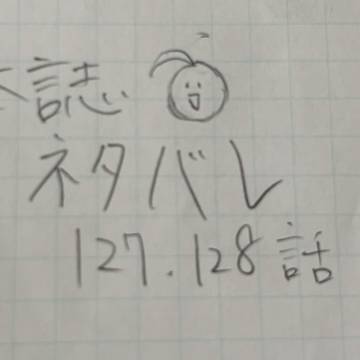 本誌
ネタバレ
127.128話